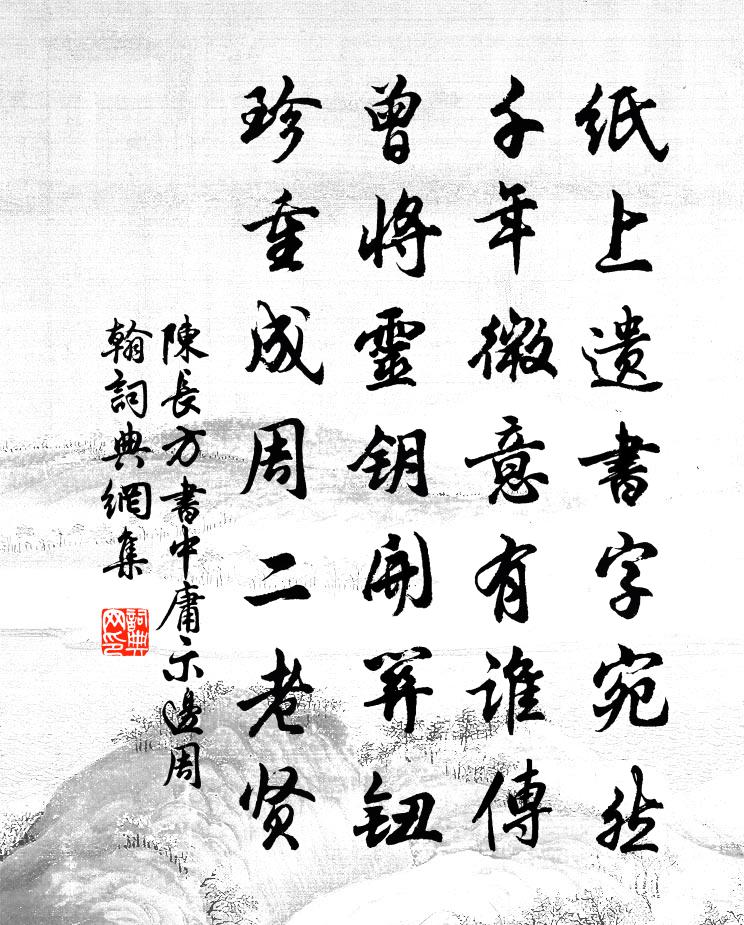 紙上遗書字宛然
千年微意有谁傳
曾將靈钥開關鈕
珍重成周二老贤
陳長方書中庸示邊周
翰詞典網集
詞典
网印